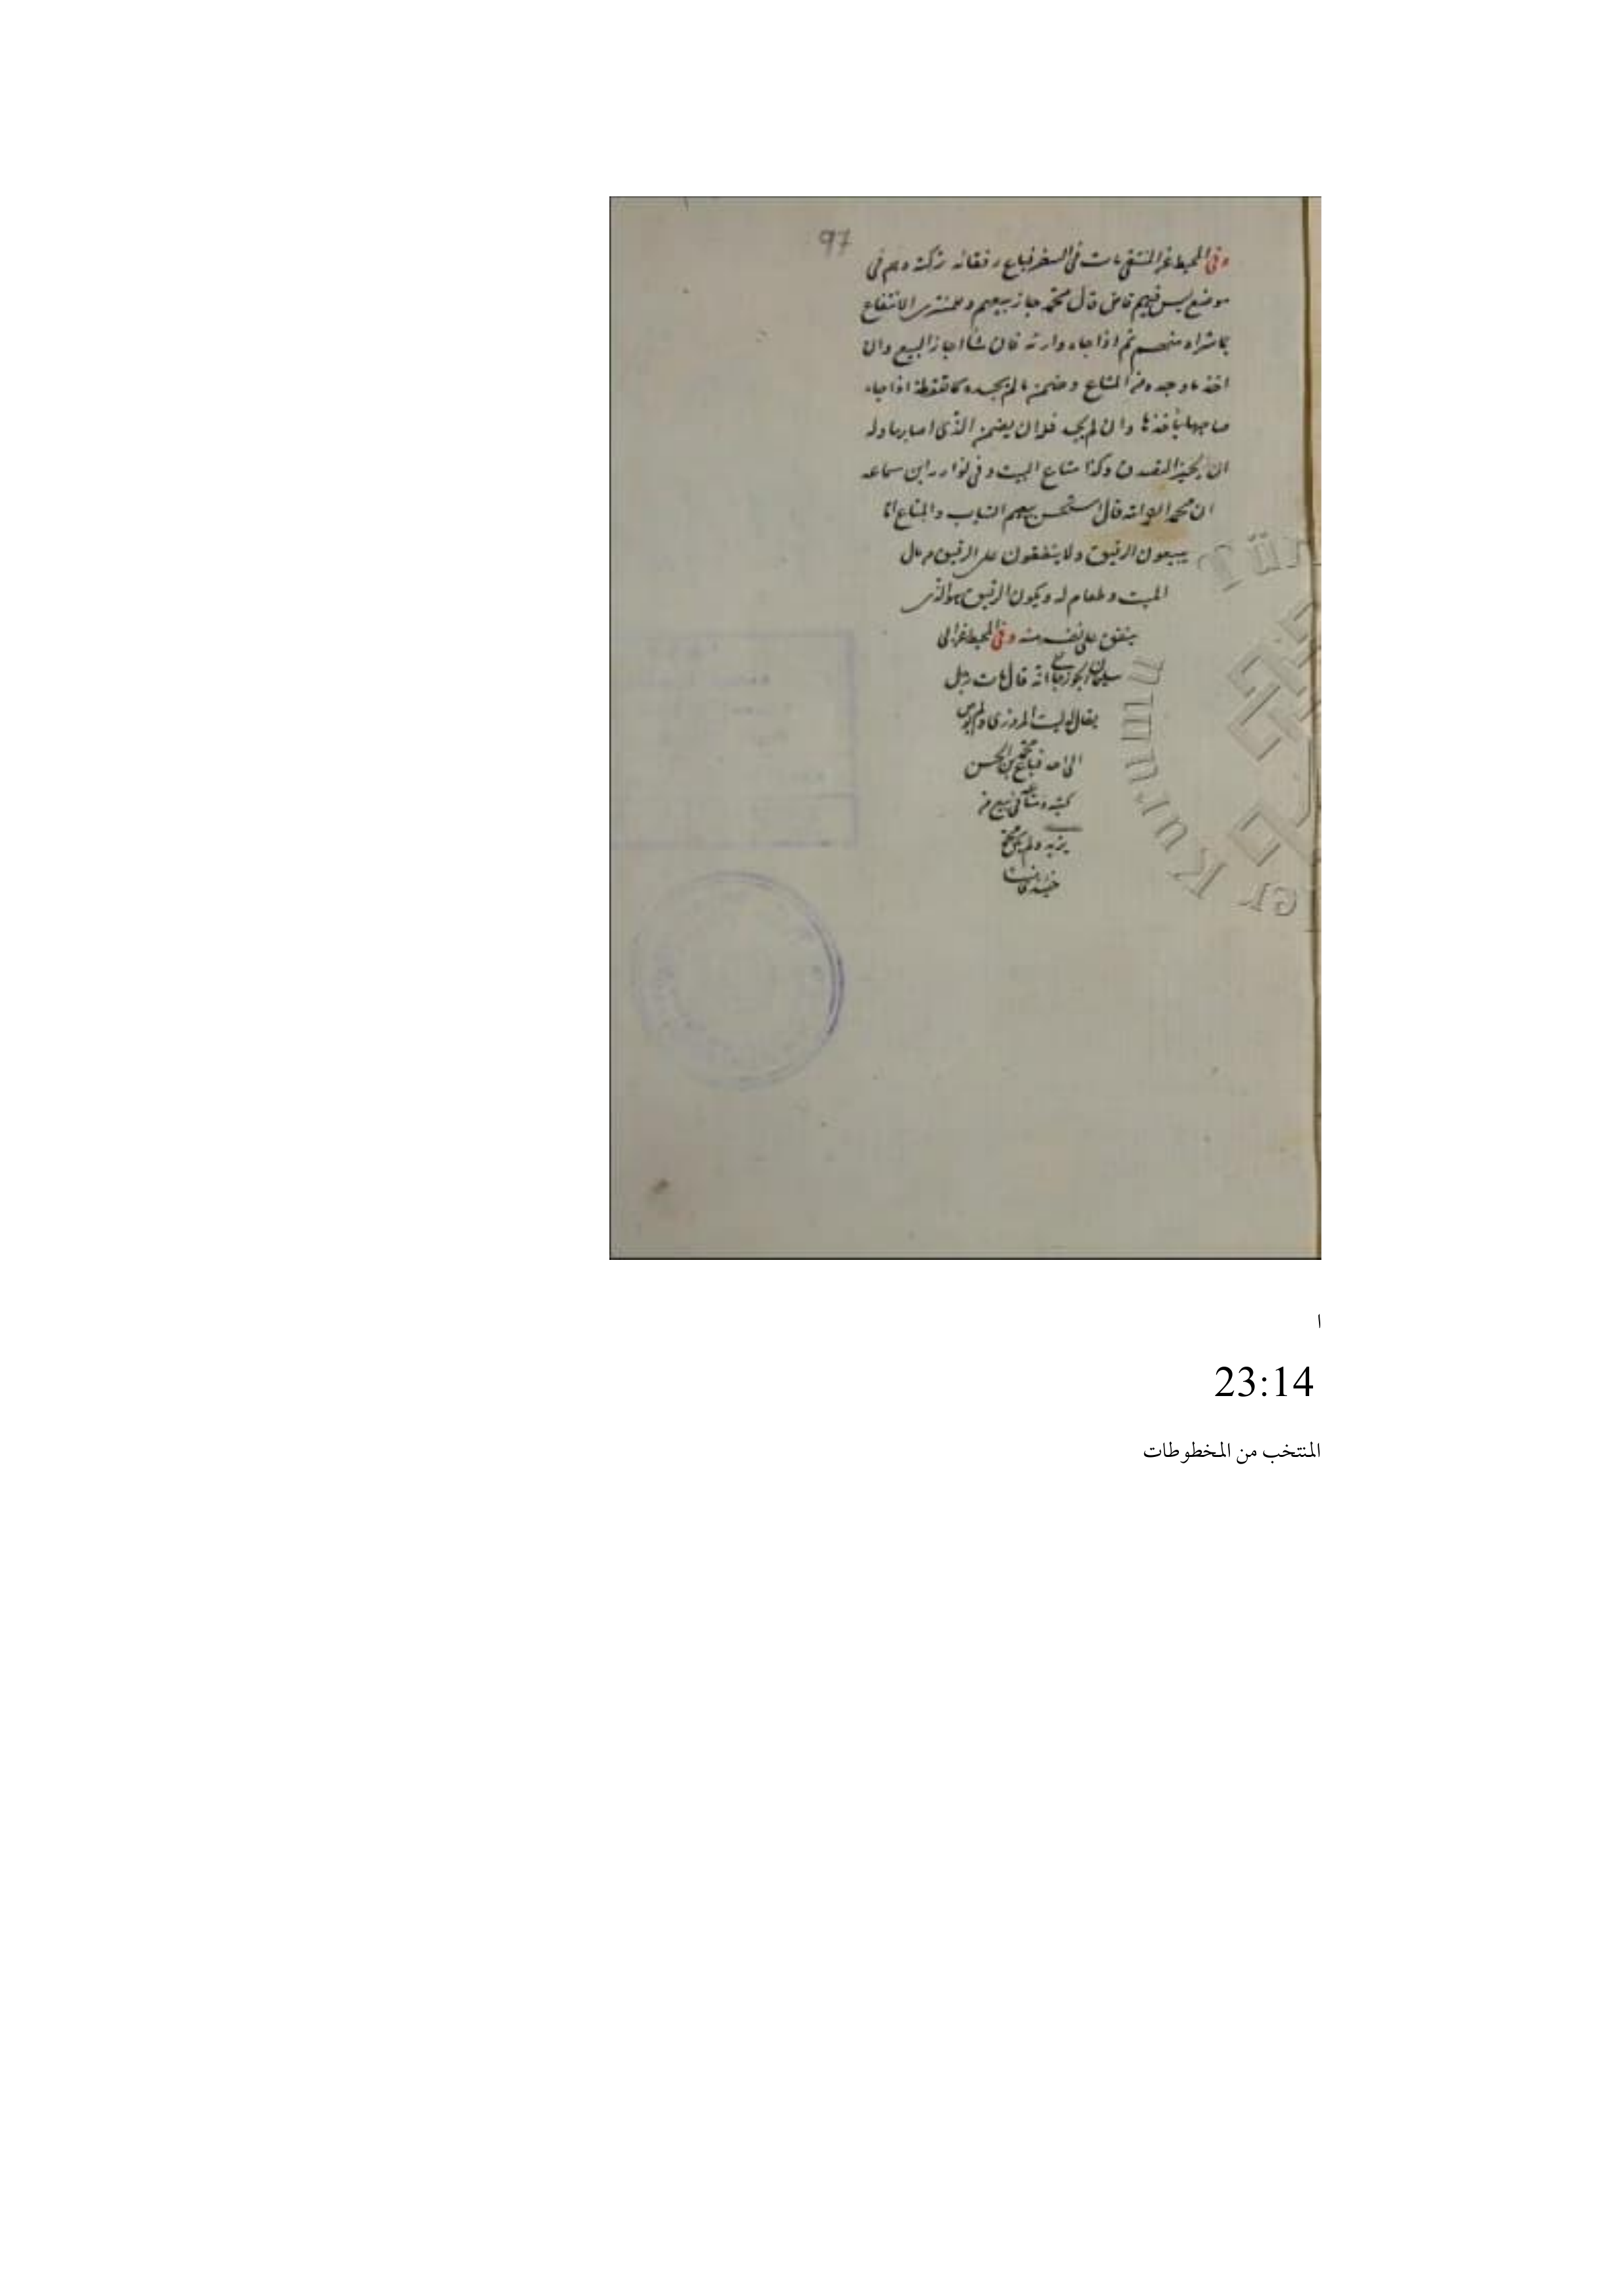 97
وفى المحيط عن المنتقى مات فى السفر فباع رفقائه تركته وهم فى
موضع ليس فيهم قاض قال محمد جاز بيعهم وللمشترى الانتفاع
بما شراه منهم ثم اذا جاء وارثه فان شا اجاز البيع وان
اخذ ما وجده من المتاع وضمن ما لم يجده كاللقطة اذا جاء
صاحبها يأخذها وان لم يجد فله ان يضمن الذى اصابها وله
ان يجيز التصدق وكذا متاع الميت وفى نوادر ابن سماعه
ان محمدا قال استحسن بيعهم الثياب والمتاع اما
يبيعون الرقيق ولا ينفقون على الرقيق من مال
الميت وطعام له ويكون الرقيق هو الذى
ينفق على نفسه منه وفى المحيط عن ابى
سليمان الجوزجانى انه قال مات رجل
يقال له المروزى ولم يوص
الى احد فباع محمد بن الحسن
كتبه ومتاعه فى بيع من
يزيد ولم يكن محمد
حينئذ قاضيا
Kurumu
ا
23:14
المنتخب من المخطوطات